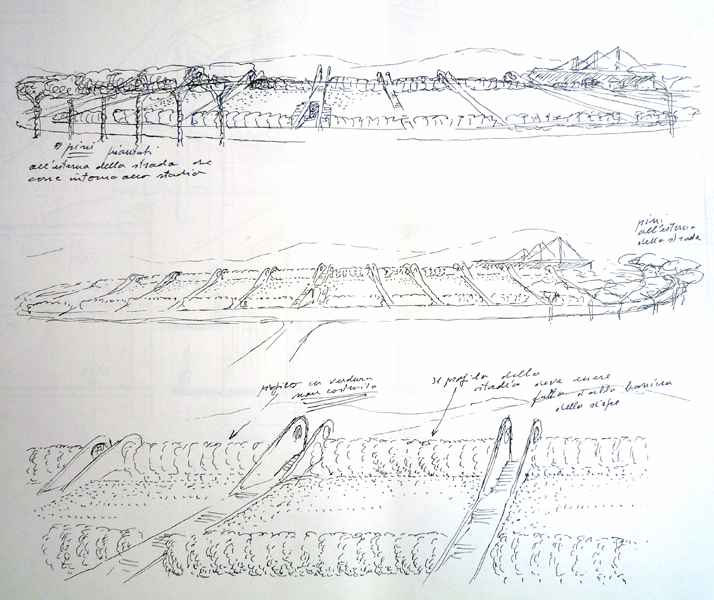 pini piantati
all'esterno della strada che
corre intorno allo stadio
pini
all'esterno
della strada
profilo in verdura
non costruito
Il profilo dello
stadio deve essere
fatto dalla barriera
della siepe